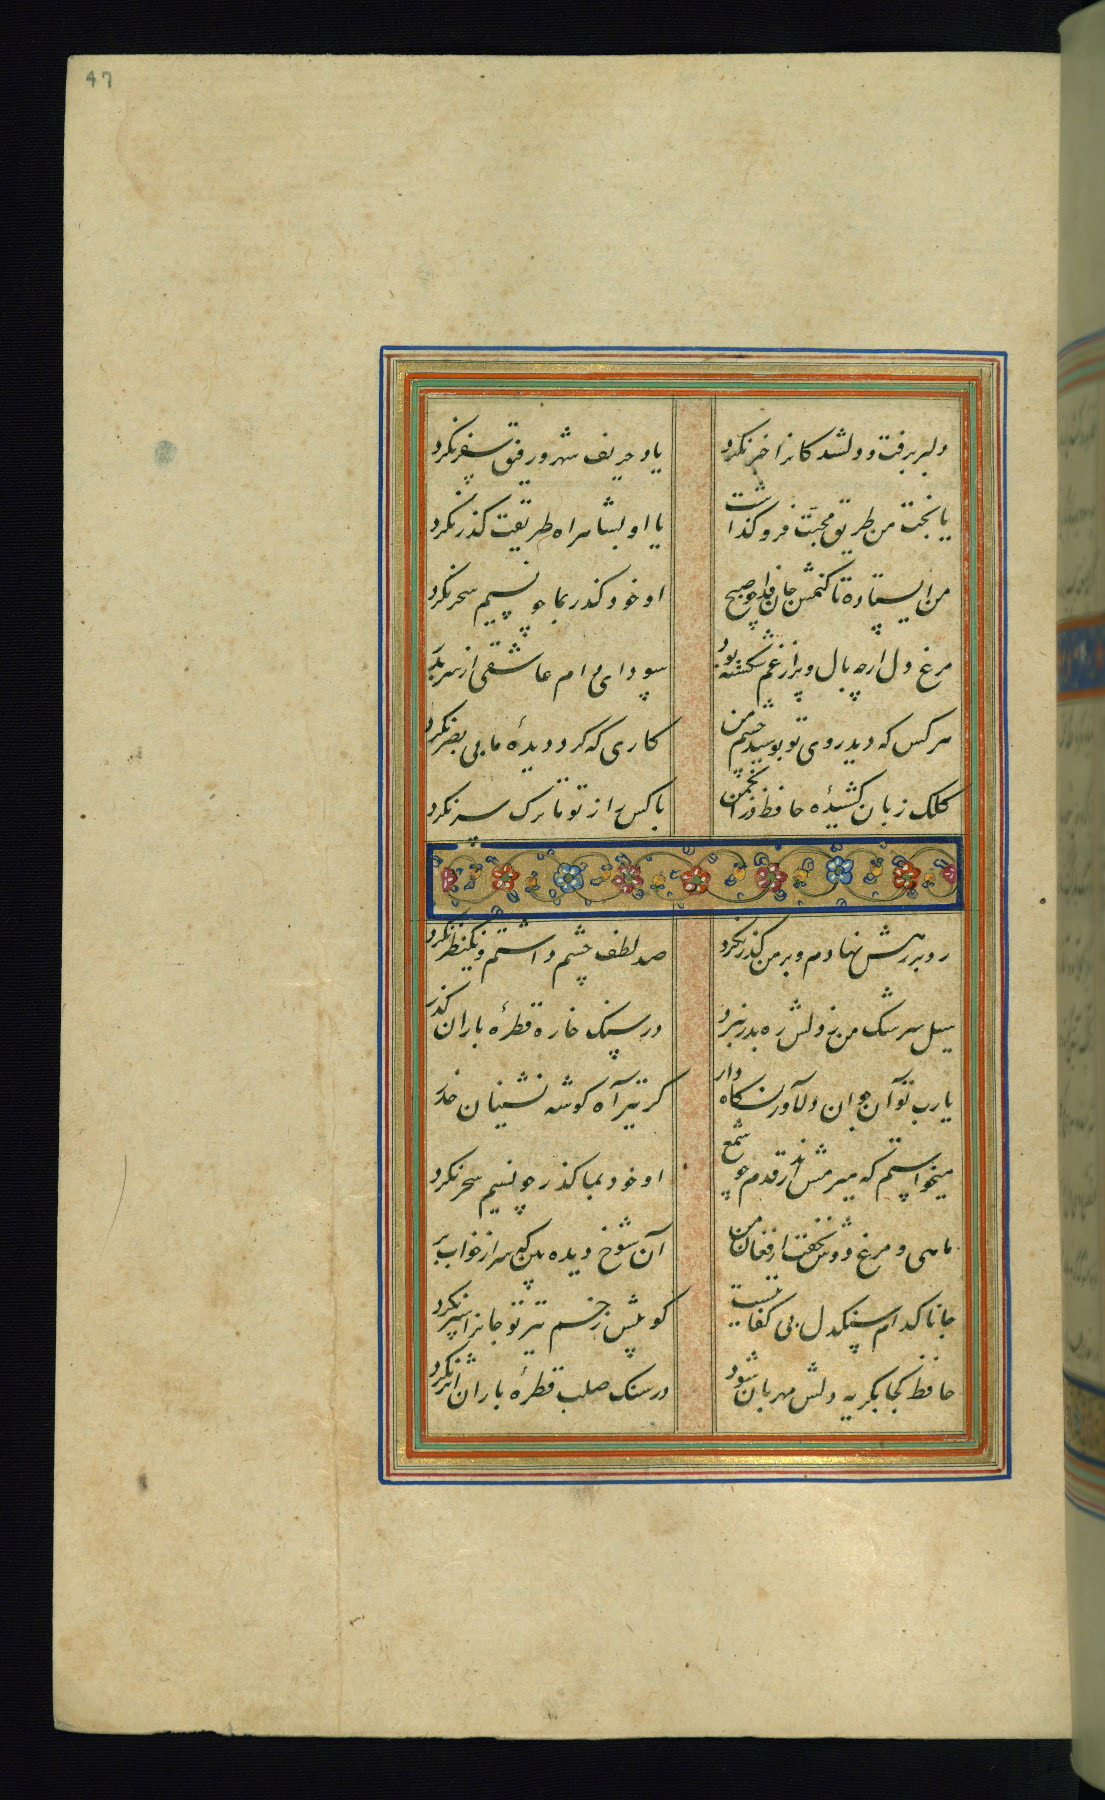 47
دلبر برفت و دلشدکانرا خبر نکرد
یاد حریف شهر و رفیق سفر نکرد
یا بخت من طریق محبت فرو کذاشت
یا او بشاهراه طریقت کذر نکرد
من ایستاده تا کنمش جان فدا چو صبح
او خود کذر بما چو نسیم سحر نکرد
مرغ دل ارچه بال و پر از غم شکسته بود
سودای دام عاشقی از سر بدر
هر کس که دید روی تو بوسید چشم من
کاری که کرد دیدهٔ ما بی بصر نکرد
کلک زبان کشیدهٔ حافظ در انجمن
با کس از تو تا ترک سر نکرد
رو بر رهش نهادم و بر من کذر نکرد
صد لطف چشم داشتم و یکنظر نکرد
سیل سرشک من ز دلش ره بدر نبرد
در سنک خاره قطرهٔ باران کذر
یا رب تو آن جوان دلاور نکاه دار
کز تیر آه کوشه نشینان حذر
میخواستم که میرمش اندر قدم چو شمع
او خود بما کذر چو نسیم سحر نکرد
ماهی و مرغ دوش نخفت از فغان من
آن شوخ دیده بین که سر از خواب بر
جانا کدام سنکدل بی کفایتست
کو پیش زخم تیر تو جانرا سپر نکرد
حافظ کجا بکریه دلش مهربان شود
در سنک صلب قطرهٔ باران اثر نکرد